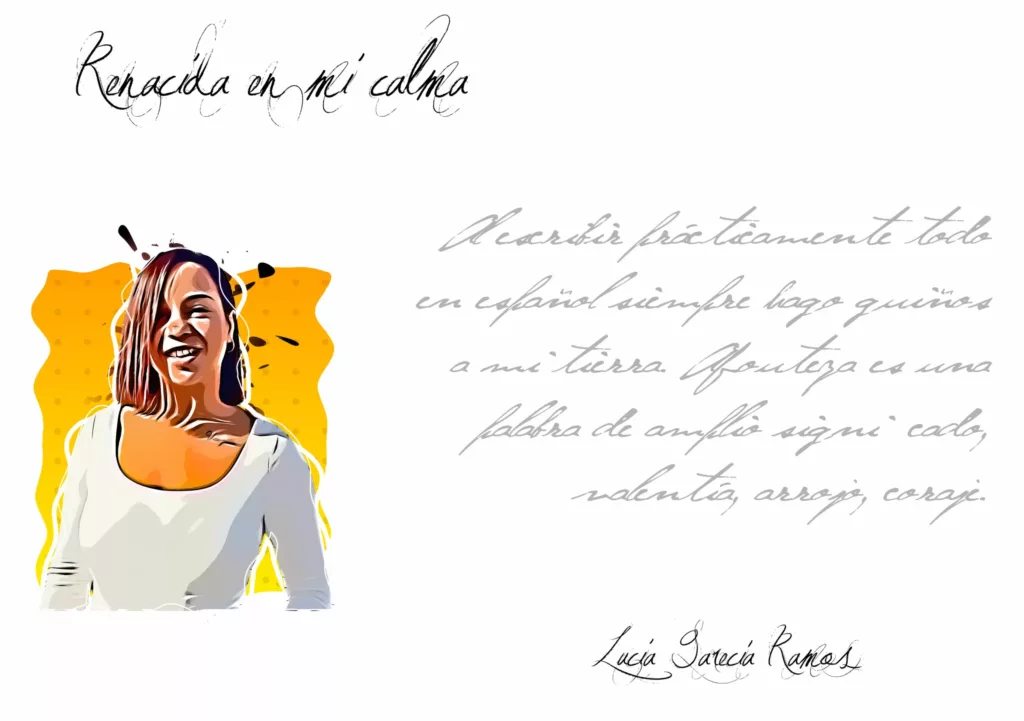 Renacida en mi calma
Al escribir prácticamente todo
en español siempre hago guiños
a mi tierra. Afouteza es una
palabra de amplio signi cado,
valentía, arrojo, coraje.
Lucía García Ramos